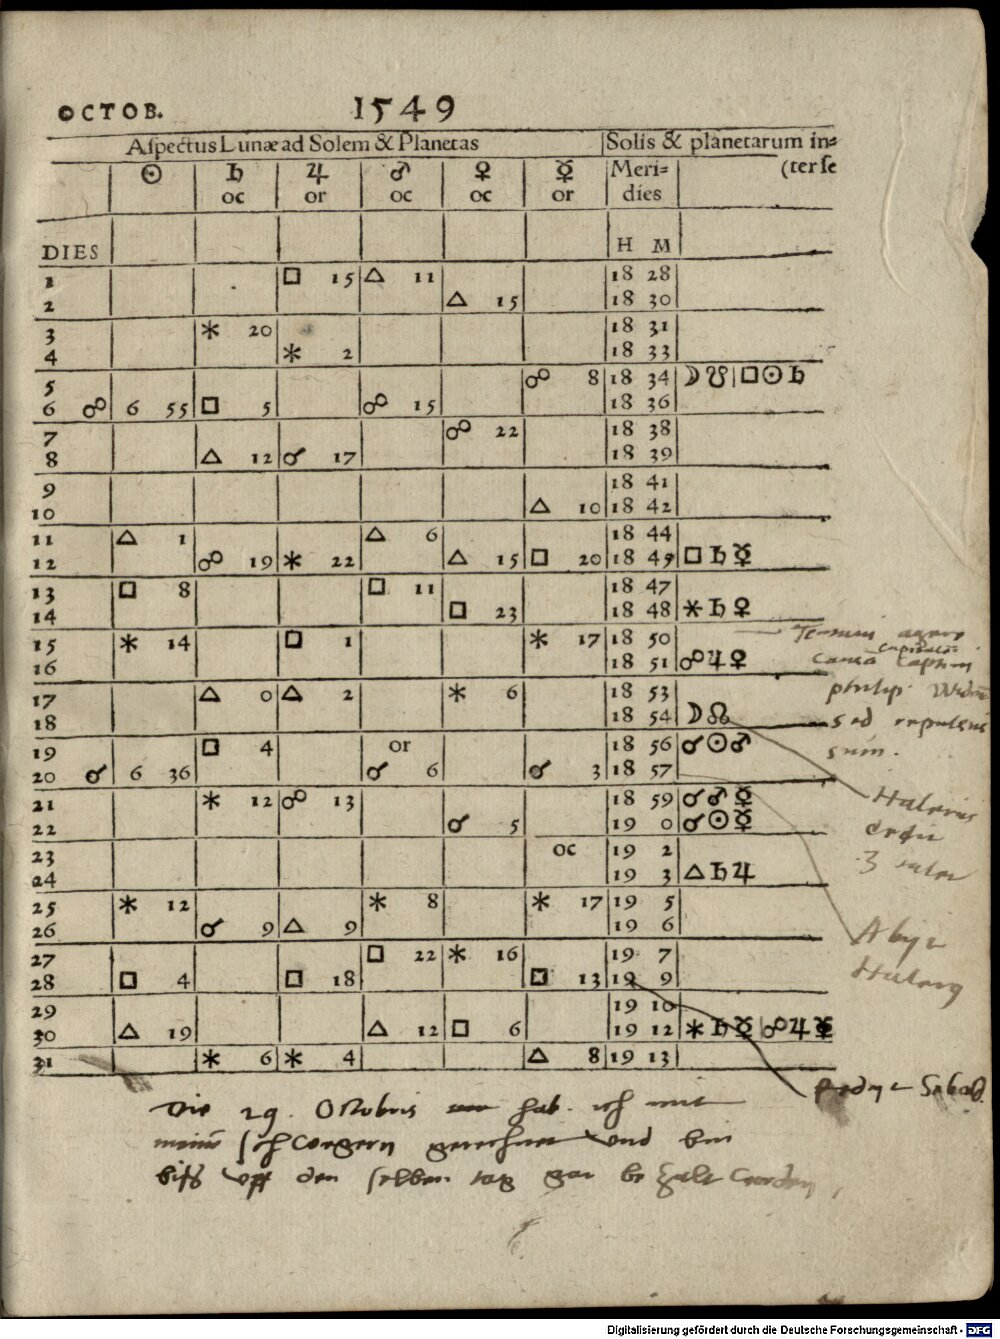 OCTOB. 1549
Aſpectus Lunæ ad Solem & Planetas | Solis & planetarum in=
☉ ♄ ♃ ♂ ♀ ☿ Meri= (ter ſe
oc or oc oc or dies
DIES H M
1 □ 15 △ 11 18 28
2 △ 15 18 30
3 ⚹ 20 18 31
4 ⚹ 2 18 33
5 ☍ 8 18 34 ☽ ☋ | □ ☉ ♄
6 ☍ 6 55 □ 5 ☍ 15 18 36
7 ☍ 22 18 38
8 △ 12 ☌ 17 18 39
9 18 41
10 △ 10 18 42
11 △ 1 △ 6 18 44
12 ☍ 19 ⚹ 22 △ 15 □ 20 18 45 □ ♄ ☿
13 □ 8 □ 11 18 47
14 □ 23 18 48 ⚹ ♄ ♀
15 ⚹ 14 □ 1 ⚹ 17 18 50
16 18 51 ☍ ♃ ♀
17 △ 0 △ 2 ⚹ 6 18 53
philip
18 18 54 ☽ ☊
sed repulsus
19 □ 4 or 18 56 ☌ ☉ ♂
sum.
20 ☌ 6 36 ☌ 6 ☌ 3 18 57
21 ⚹ 12 ☍ 13 18 59 ☌ ♂ ☿
22 ☌ 5 19 0 ☌ ☉ ☿
23 oc 19 2
3
24 19 3 △ ♄ ♃
25 ⚹ 12 ⚹ 8 ⚹ 17 19 5
26 ☌ 9 △ 9 19 6
27 □ 22 ⚹ 16 19 7
28 □ 4 □ 18 □ 13 19 9
29 19 10
30 △ 19 △ 12 □ 6 19 12 ⚹ ♄ ☿ | ☍ ♃ ☿
31 ⚹ 6 ⚹ 4 △ 8 19 13
Die 29. Octobris hab ich mit
gerechnet und bin
biß uff den selben tag gar bezalt worden
Digitalisierung gefördert durch die Deutsche Forschungsgemeinschaft - DFG